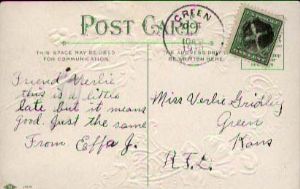 POST CARD
GREEN
THIS SPACE MAY BE USED
FOR COMMUNICATION.
THE ADDRESS ONLY
TO BE WRITTEN HERE.
Friend Verlie
this is a little
late but it means
good. just the same
From Effa J.
Miss Verlie Gridley
Green
Kans